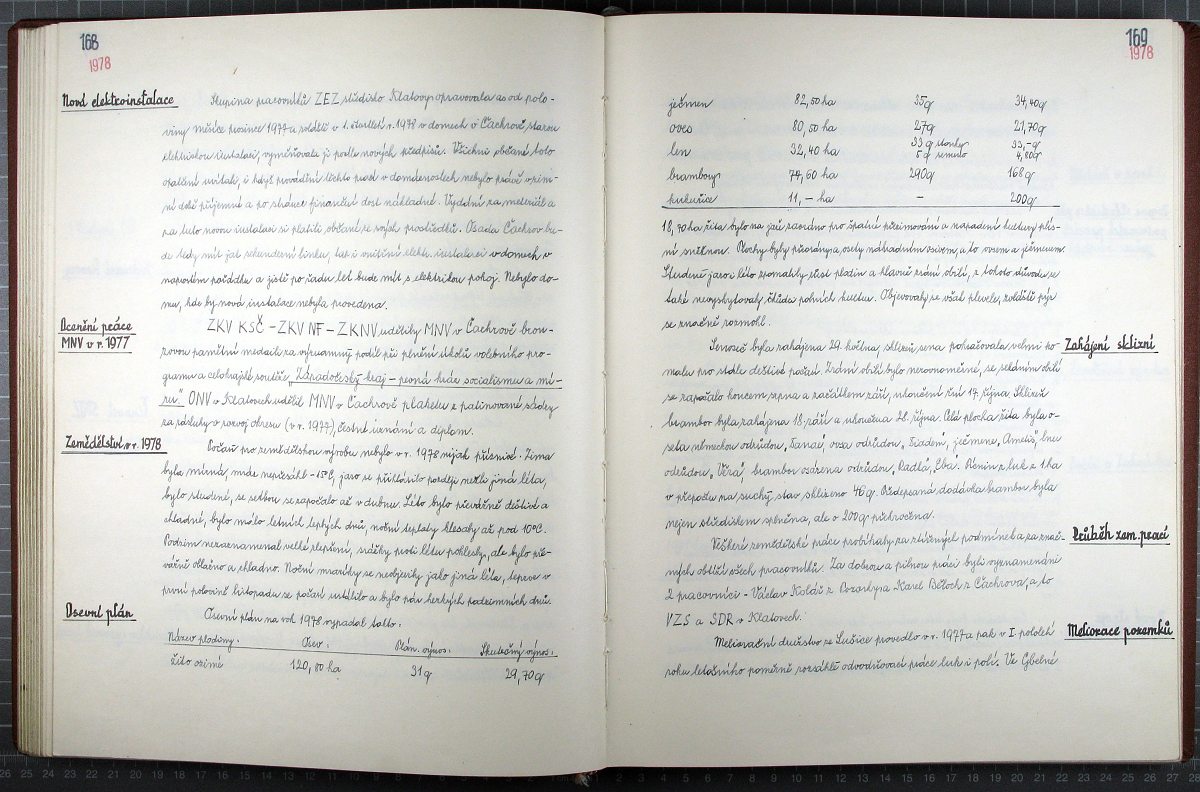 168
1978
Nová elektroinstalace
Skupina pracovníků ZEZ středisko Klatovy opravovala as od polo-
viny měsíce prosince 1977 a zvláště v 1. čtvrtletí r. 1978 v domech v Čachrově starou
elektrickou instalaci, vyměňovala ji podle nových předpisů. Všichni občané toto
opatření uvítali, i když provádění těchto prací v domácnostech nebylo právě v zim-
ní době příjemné a po stránce finanční dost nákladné. Vydání za materiál a
za tuto novou instalaci si platili občané ze svých prostředků. Osada Čachrov bu-
de tedy mít jak sekunderní linku, tak i vnitřní elektr. instalaci v domech v
naprostém pořádku a jistě po řadu let bude mít s elektrikou pokoj. Nebylo do-
mu, kde by nová instalace nebyla provedena.
Ocenění práce
MNV v r. 1977
ZKV KSČ - ZKV NF - ZKNV udělily MNV v Čachrově bron-
zovou pamětní medaili za významný podíl při plnění úkolů volebního pro-
gramu a celokrajské soutěže „Západočeský kraj - pevná hráz socialismu a mí-
ru". ONV v Klatovech udělil MNV v Čachrově plaketu z patinované sádry
za zásluhy o rozvoj okresu (v r. 1977), čestné uznání a diplom.
Zemědělství v r. 1978
Počasí pro zemědělskou výrobu nebylo v r. 1978 nijak příznivé. Zima
byla mírná, mráz nepřesáhl -15°C, jaro se přihlásilo později nežli jiná léta,
bylo studené, se setbou se započalo až v dubnu. Léto bylo převážně deštivé a
chladné, bylo málo letních teplých dnů, noční teploty klesaly až pod 10°C.
Podzim nezaznamenal velké zlepšení, srážky proti létu poklesly, ale bylo pře-
vážně oblačno a chladno. Noční mrazíky se neobjevily jako jiná léta, teprve v
první polovině listopadu se počasí ustálilo a bylo pár hezkých podzimních dnů.
Osevní plán
Osevní plán na rok 1978 vypadal takto:
Název plodiny: Osev: Plán. výnos: Skutečný výnos:
žito ozimé 120,80 ha 31q 29,70q
169
1978
ječmen 82,50 ha 35q 34,40q
oves 80,50 ha 27q 21,70q
len 32,40 ha 33 q stonky 33,-q
5 q semeno 4,80q
brambory 74,60 ha 290q 168q
kukuřice 11,- ha - 200q
18,70 ha žita bylo na jaře zaoráno pro špatné přezimování a napadení kultury plís-
ní sněžnou. Plochy byly přeorány a osety náhradním osivem, a to ovsem a ječmenem.
Studené jaro i léto zpomalily růst pladin a hlavně zrání obilí, z tohoto důvodu se
také nevyskytovaly škůdci polních kultur. Objevovaly se však plevele, zvláště pýr
se značně rozmohl.
Zahájení sklizní
Senoseč byla zahájena 29. května, sklizeň sena pokračovala velmi po-
malu pro stále deštivé počasí. Zrání obilí bylo nerovnoměrné, se sekáním obilí
se započalo koncem srpna a začátkem září, ukončení žní 17. října. Sklizeň
brambor byla zahájena 18. září a ukončena 28. října. Celá plocha žita byla o-
seta německou odrůdou „Danaé", ovsa odrůdou „Diadém", ječmene „Ametis", lnu
odrůdou „Věra", brambor osázena odrůdou „Radka", „Eba". Pícnin z luk z 1 ha
v přepočtu na suchý stav sklizeno 40 q. Předepsaná dodávka brambor byla
nejen střediskem splněna, ale o 200 q překročena.
Průběh zem. prací
Veškeré zemědělské práce probíhaly za ztížených podmínek a za znač-
ných obtíží všech pracovníků. Za dobrou a pilnou práci byli vyznamenáni
2 pracovníci - Václav Koldů z Bradné a Karel Běloch z Čachrova, a to
VZS a SDR v Klatovech.
Meliorace pozemků
Meliorační družstvo ze Sušice provedlo v r. 1977 a pak v I. pololetí
roku letošního poměrně rozsáhlé odvodňovací práce luk i polí. Ve Gbelné